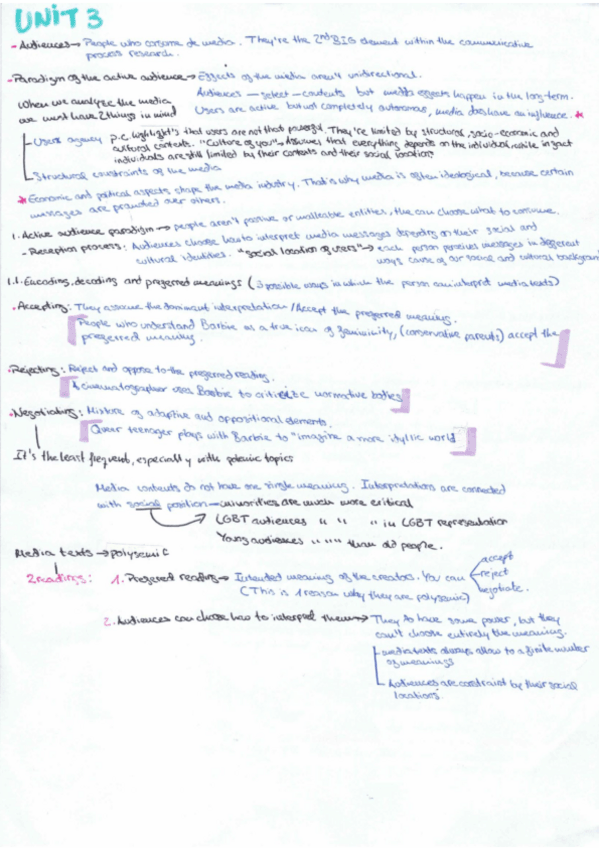 UNIT 3
- Audiences → People who consume de media. They're the 2nd BIG element within the communicative
process research.
- Paradigm of the active audience → Effects of the media aren't unidirectional.
Audiences — select — contents but media effects happen in the long-term.
Users are active but not completely autonomous, media does have an influence. *
When we analyze the media
we must have 2 things in mind
Users agency
P.C. Highlight's that users are not that powerful. They're limited by structural, socio-economic and
cultural contexts. "Culture of you" → Assumes that everything depends on the individual, while in fact
individuals are still limited by their contexts and their social locations
Structural constraints of the media
* Economic and political aspects shape the media industry. That's why media is often ideological, because certain
messages are promoted over others.
1. Active audience paradigm → people aren't passive or malleable entities, the can choose what to consume.
- Reception process: Audiences choose how to interpret media messages depending on their social and
cultural identities. "social location of users" → each person perceives messages in different
ways cause of our social and cultural background
1.1. Encoding, decoding and preferred meanings (3 possible ways in which the person can interpret media texts)
• Accepting: They assume the dominant interpretation / Accept the preferred meaning.
People who understand Barbie as a true icon of femininity, (conservative parents) accept the
preferred meaning.
• Rejecting: Reject and oppose to the preferred reading.
A cinematographer uses Barbie to criticize normative bodies
• Negotiating: Mixture of adaptive and oppositional elements.
Queer teenager plays with Barbie to "imagine a more idyllic world
It's the least frequent, especially with polemic topics
Media contents do not have one single meaning. Interpretations are connected
with social position — minorities are much more critical
LGBT audiences " " " in LGBT representation
Young audiences " " " than old people.
Media texts → polysemic
2 readings: 1. Preferred reading → Intended meaning of the creators. You can
accept
reject
negotiate.
(This is 1 reason why they are polysemic)
2. Audiences can choose how to interpret them → They do have some power, but they
can't choose entirely the meaning.
media texts always allow to a finite number
of meanings
Audiences are constraint by their social
locations.